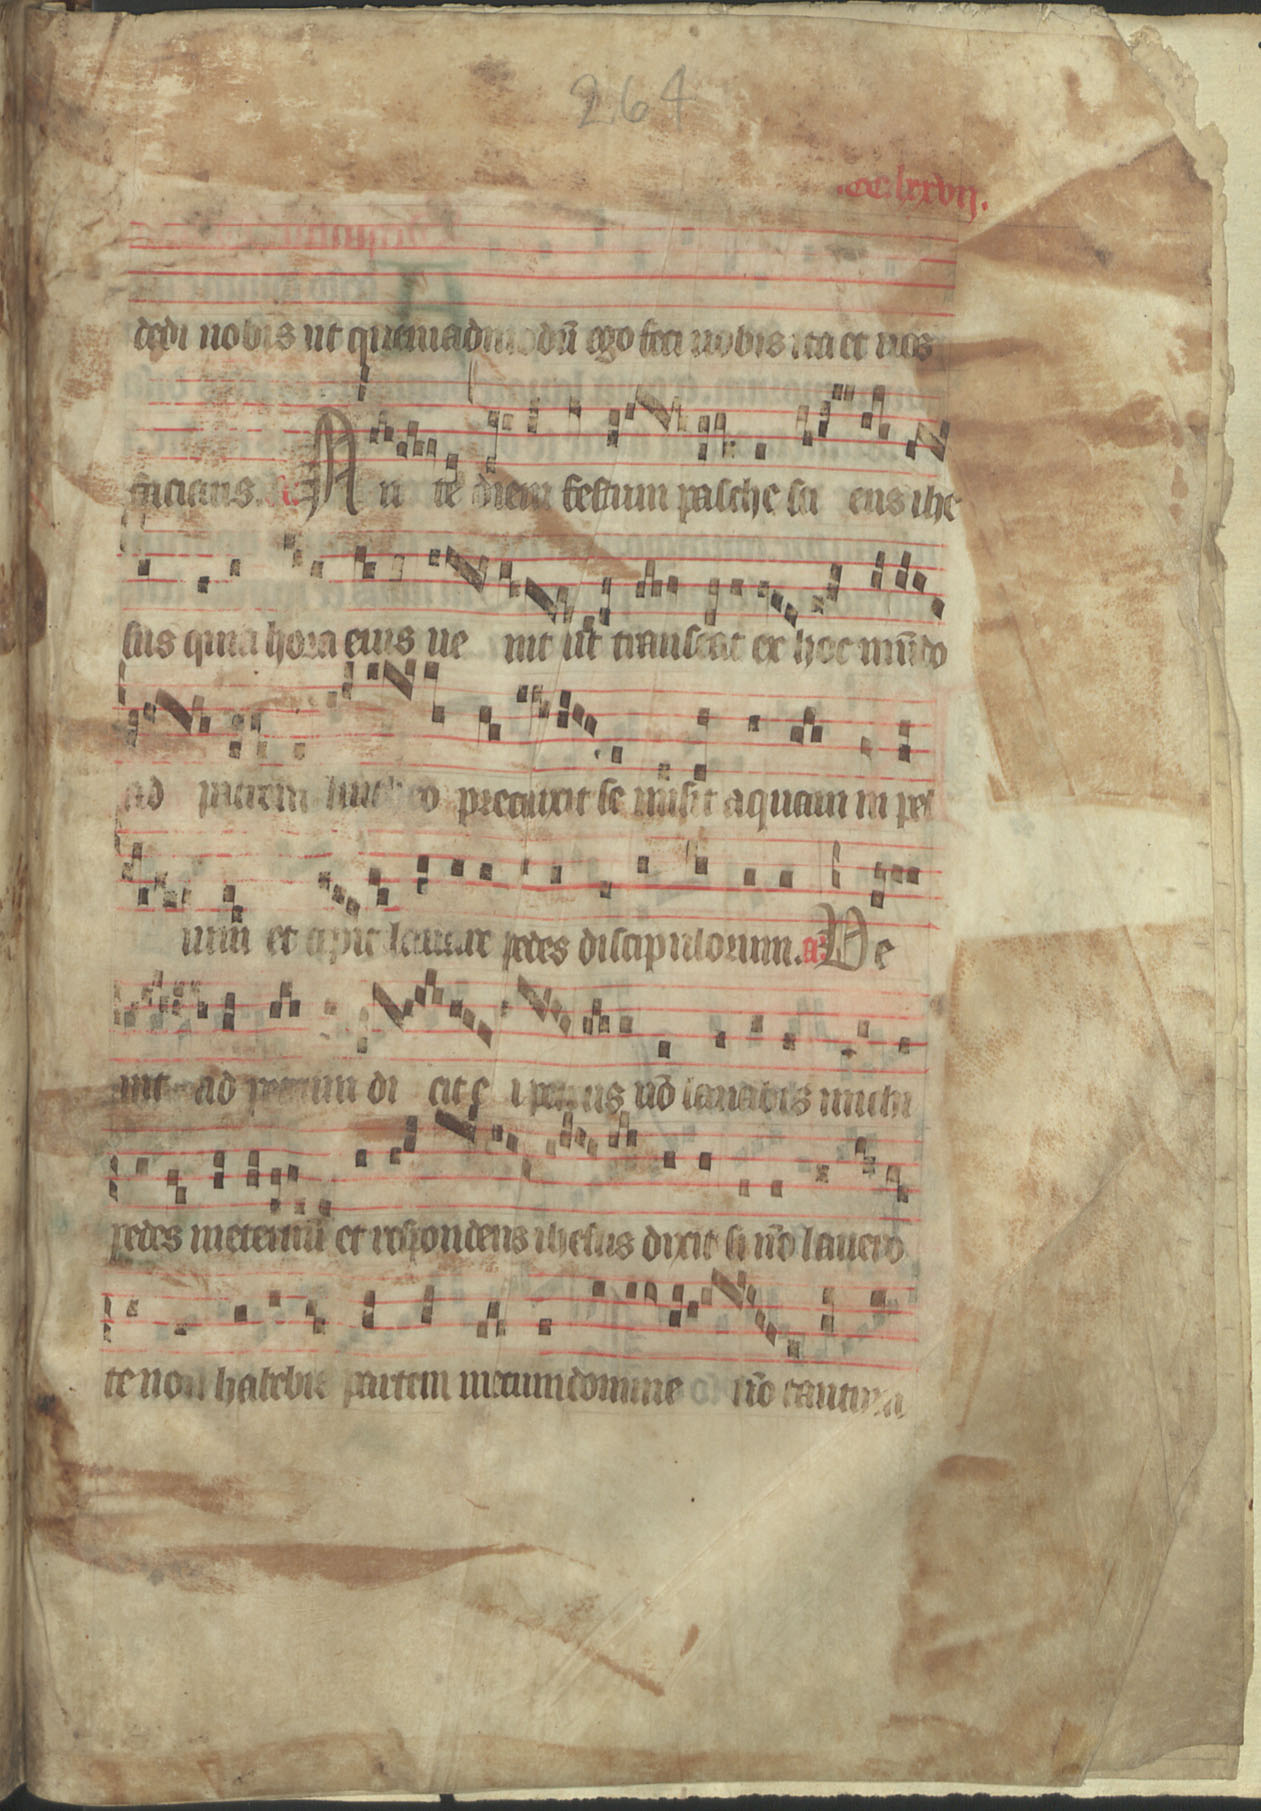 264
.cclxxvij.
dedi uobis ut quemadmodū ego feci uobis ita et uos
faciatis. An te diem festum pasche sci ens ihe
sus quia hora eius ue nit ut transeat ex hoc mūdo
ad patrem
precinxit se misit aquam in pel
uim et cepit lauare pedes discipulorum. a. Ve
nit ad petrum di cit ei petrus nō lauabis michi
pedes ineternū et respondens ihesus dixit si nō lauero
te non habebis partem mecum domine nō tantum